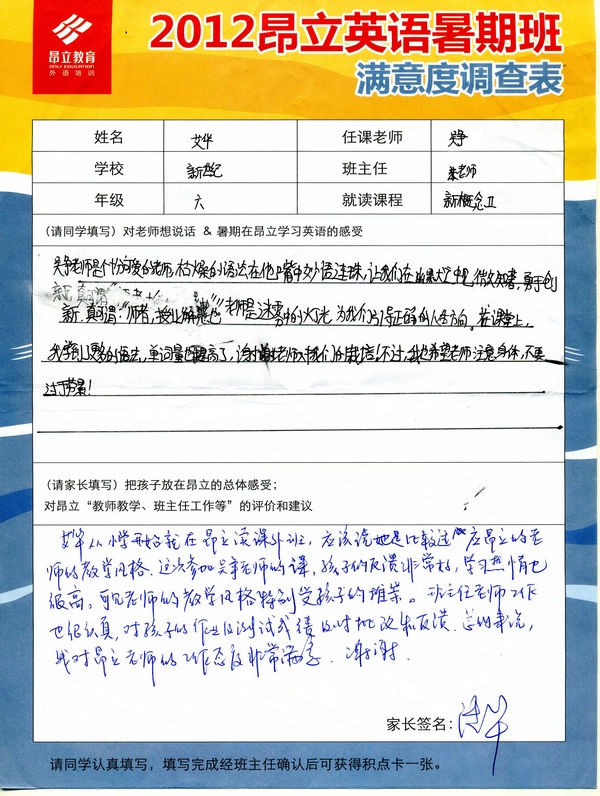 昂立教育
ONLY EDUCATION
外语培训
2012昂立英语暑期班
满意度调查表
姓名 艾华 任课老师
学校 新世纪 班主任 老师
年级 六 就读课程 新概念II
(请同学填写)对老师想说话 & 暑期在昂立学习英语的感受
老师是个的老师,枯燥的语法在他嘴中妙语连珠,让我们在中,勇于创
新.真可谓:“师者,授业解惑也”老师是迷雾中的灯光,为我们引导正确的人生方向。在课堂上,
我学到更多的语法,单词量也提高了,谢谢老师对我们的栽培!不过,我也希望老师注意身体,不要
过于劳累!
(请家长填写)把孩子放在昂立的总体感受;
对昂立“教师教学、班主任工作等”的评价和建议
艾华从小学开始就在昂立读课外班,应该说她是比较适应昂立的老
师的教学风格.这次参加吴老师的课,孩子的反馈非常好,学习热情也
很高,可见老师的教学风格特别受孩子的推崇。班主任老师工作
也很认真,对孩子的作业及测试成绩及时批改和反馈.总的来说,
我对昂立老师的工作态度非常满意.谢谢.
家长签名:
请同学认真填写,填写完成经班主任确认后可获得积点卡一张。